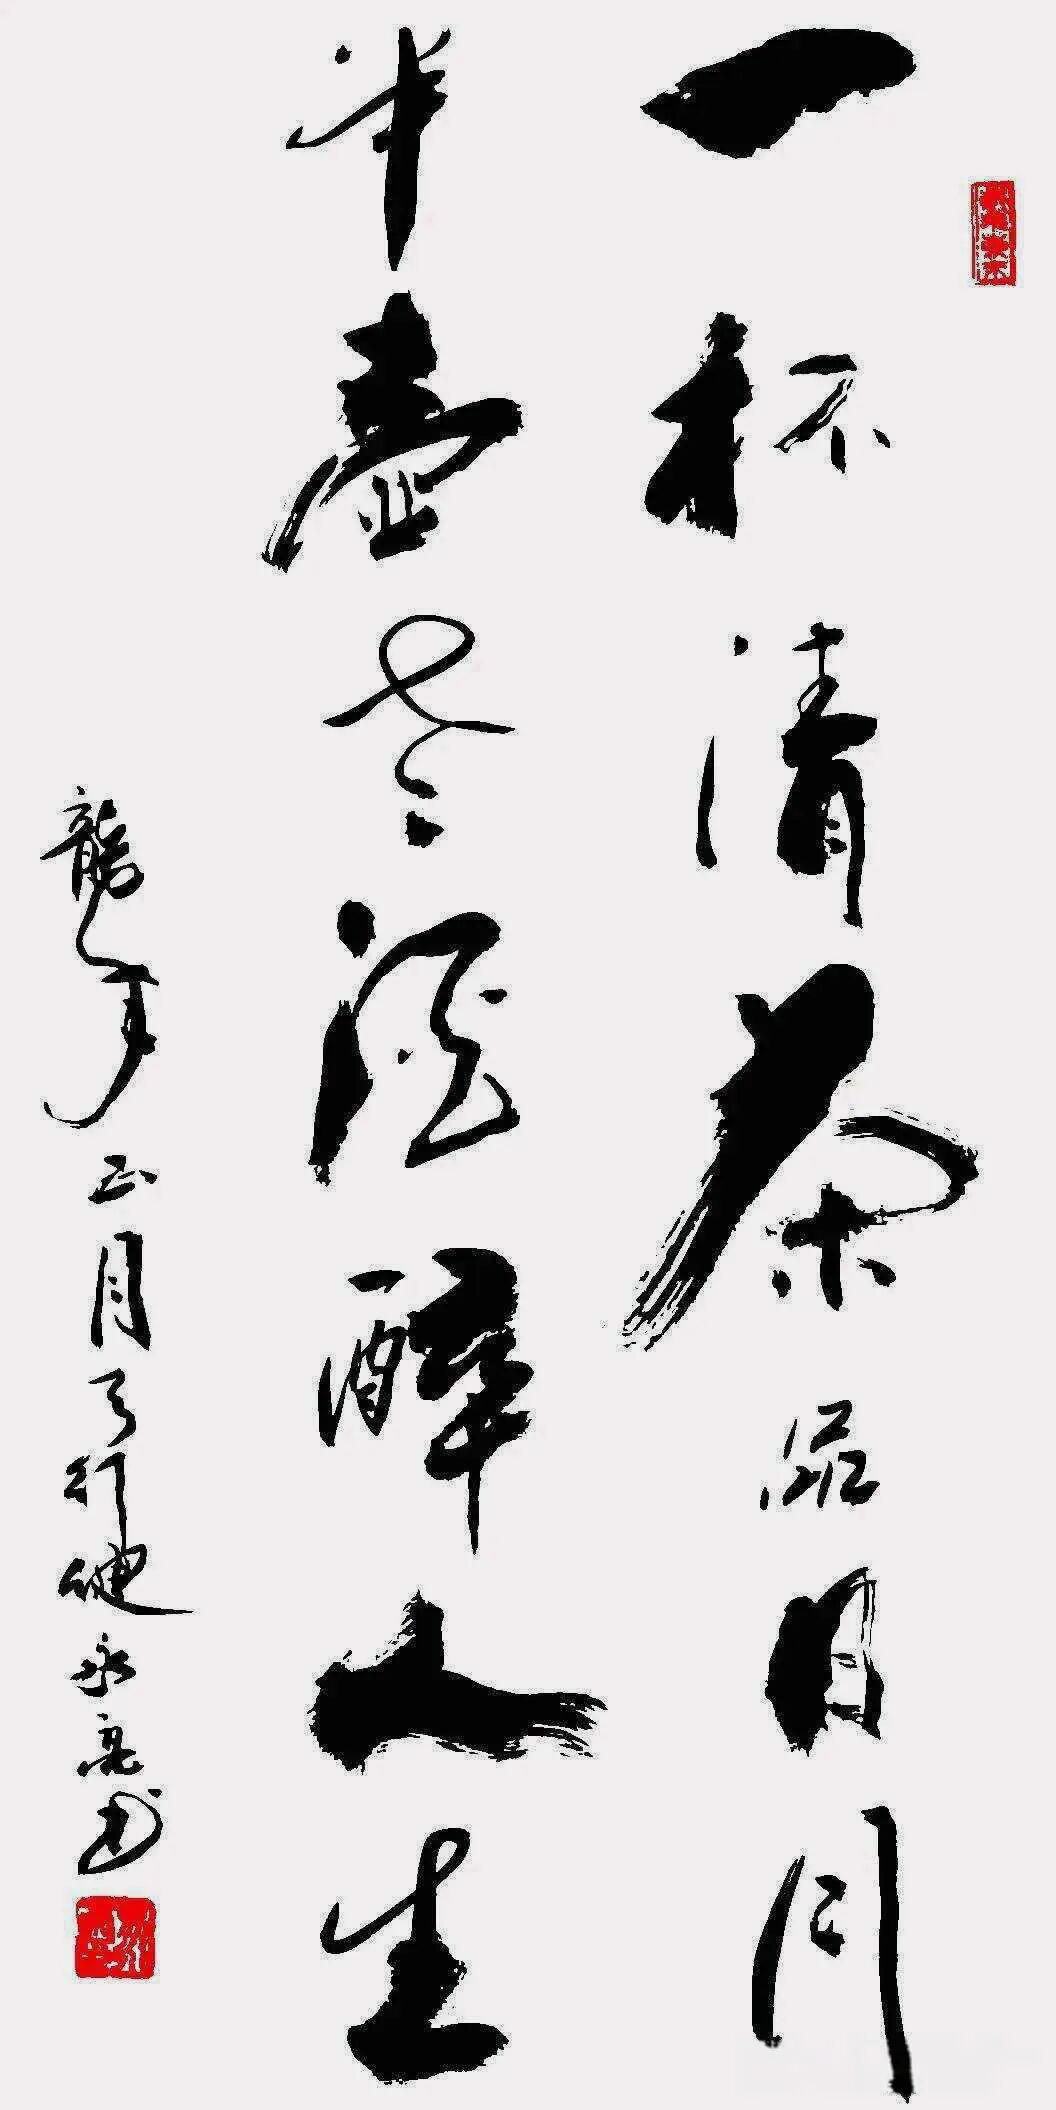 一杯清茶品日月
半壺酒醉人生
龍年正月天行健永亮书